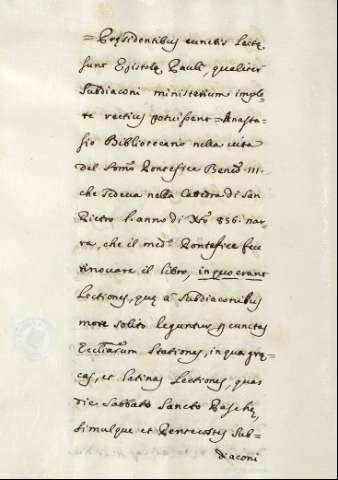 = Pręsidentibus cunctis lectę
sunt Epistolę Pauli, qualiter
Subdiaconi ministerium imple-
re rectius potuissent = Anasta-
sio Bibliotecario nella vita
del Som̃o Pontefice Bened.º III.
che sedeva nella Catedra di San
Pietro l'anno di Xp̃o 856. nar-
ra, che il med.º Pontefice fece
rinovare il libro, in quo erant
Lectiones, quę a Subdiaconibus
more solito leguntur p cunctas
Eccl̃iarum Stationes, in qua grę-
cas, et latinas Lectiones, quas
die Sabbato Sancto Paschę,
simulque et Pentecostes Sub=
diaconi